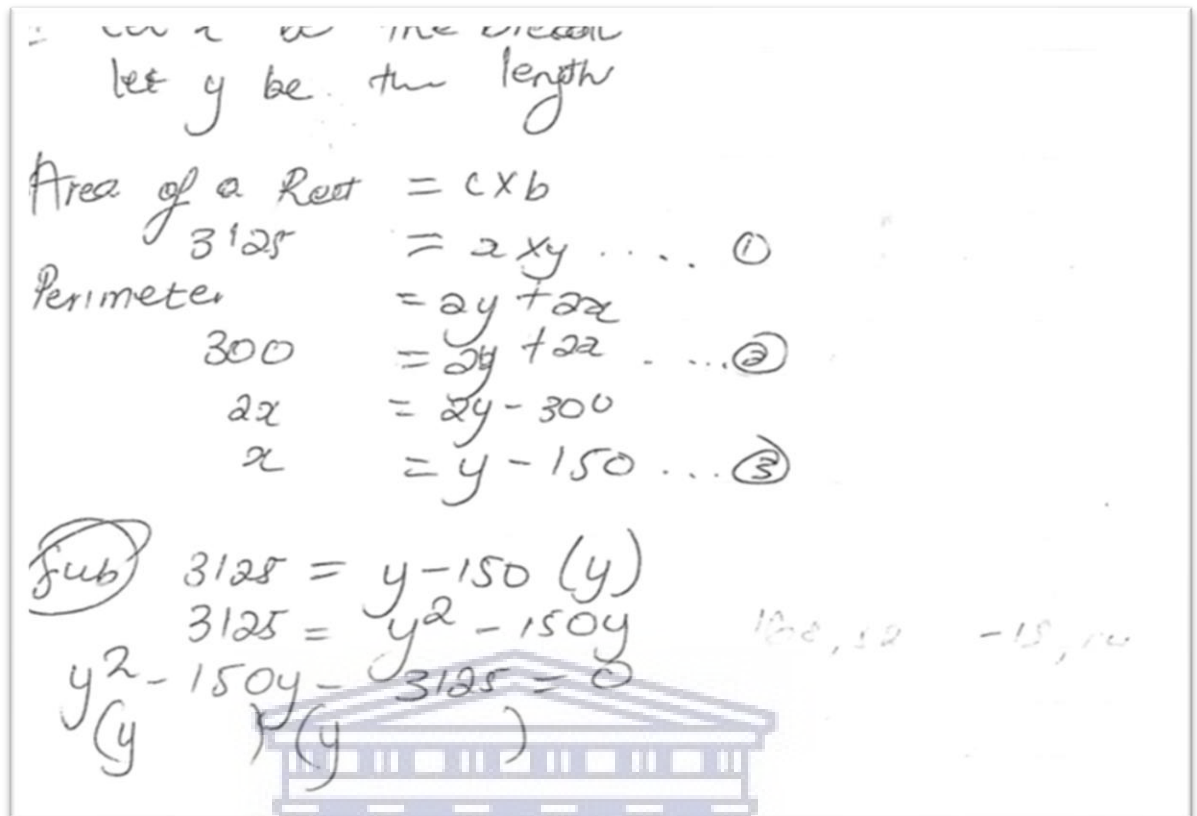 let y be the length
Area of a Rect = l x b
3125 = x x y .... ①
Perimeter = 2y + 2x
300 = 2y + 2x .... ②
2x = 2y - 300
x = y - 150 ... ③
Sub 3125 = y - 150 (y)
3125 = y² - 150y
y² - 150y - 3125 = 0
(y ) (y )